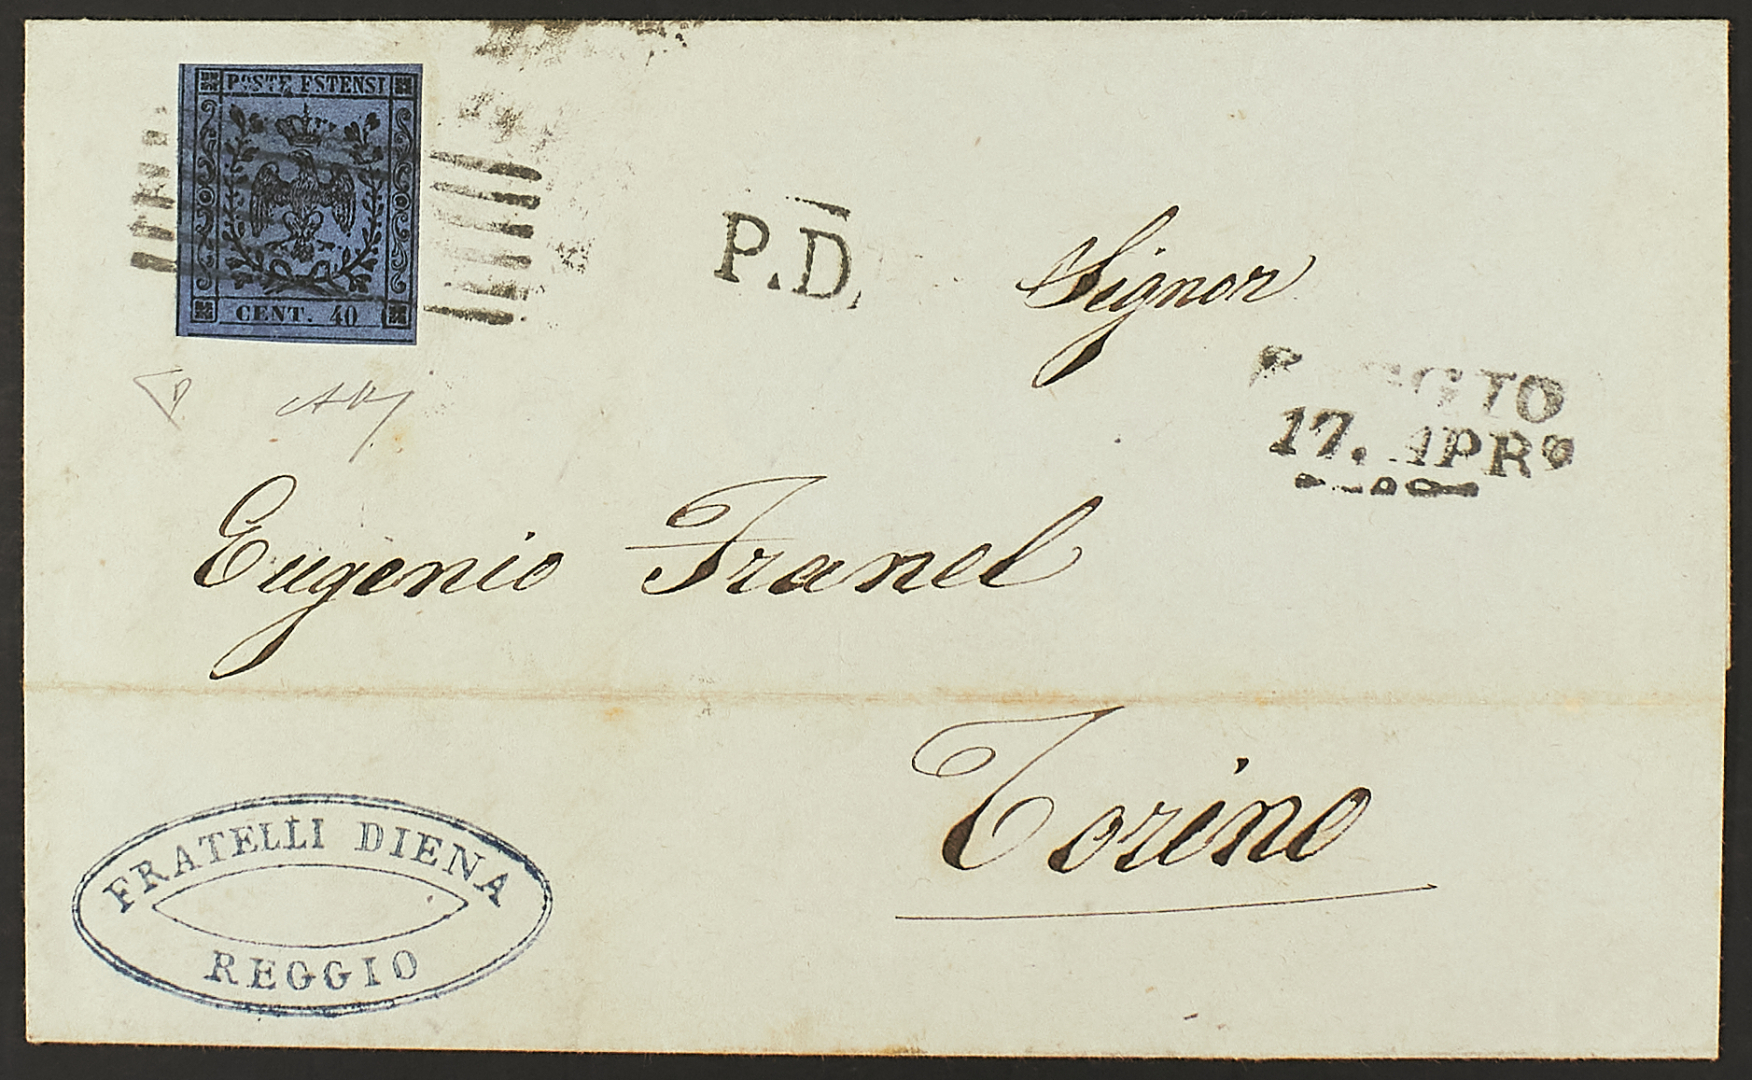 POSTE ESTENSI
CENT. 40
P.D.
Signor
REGGIO
17. APR
Eugenio Franel
Torino
FRATELLI DIENA
REGGIO